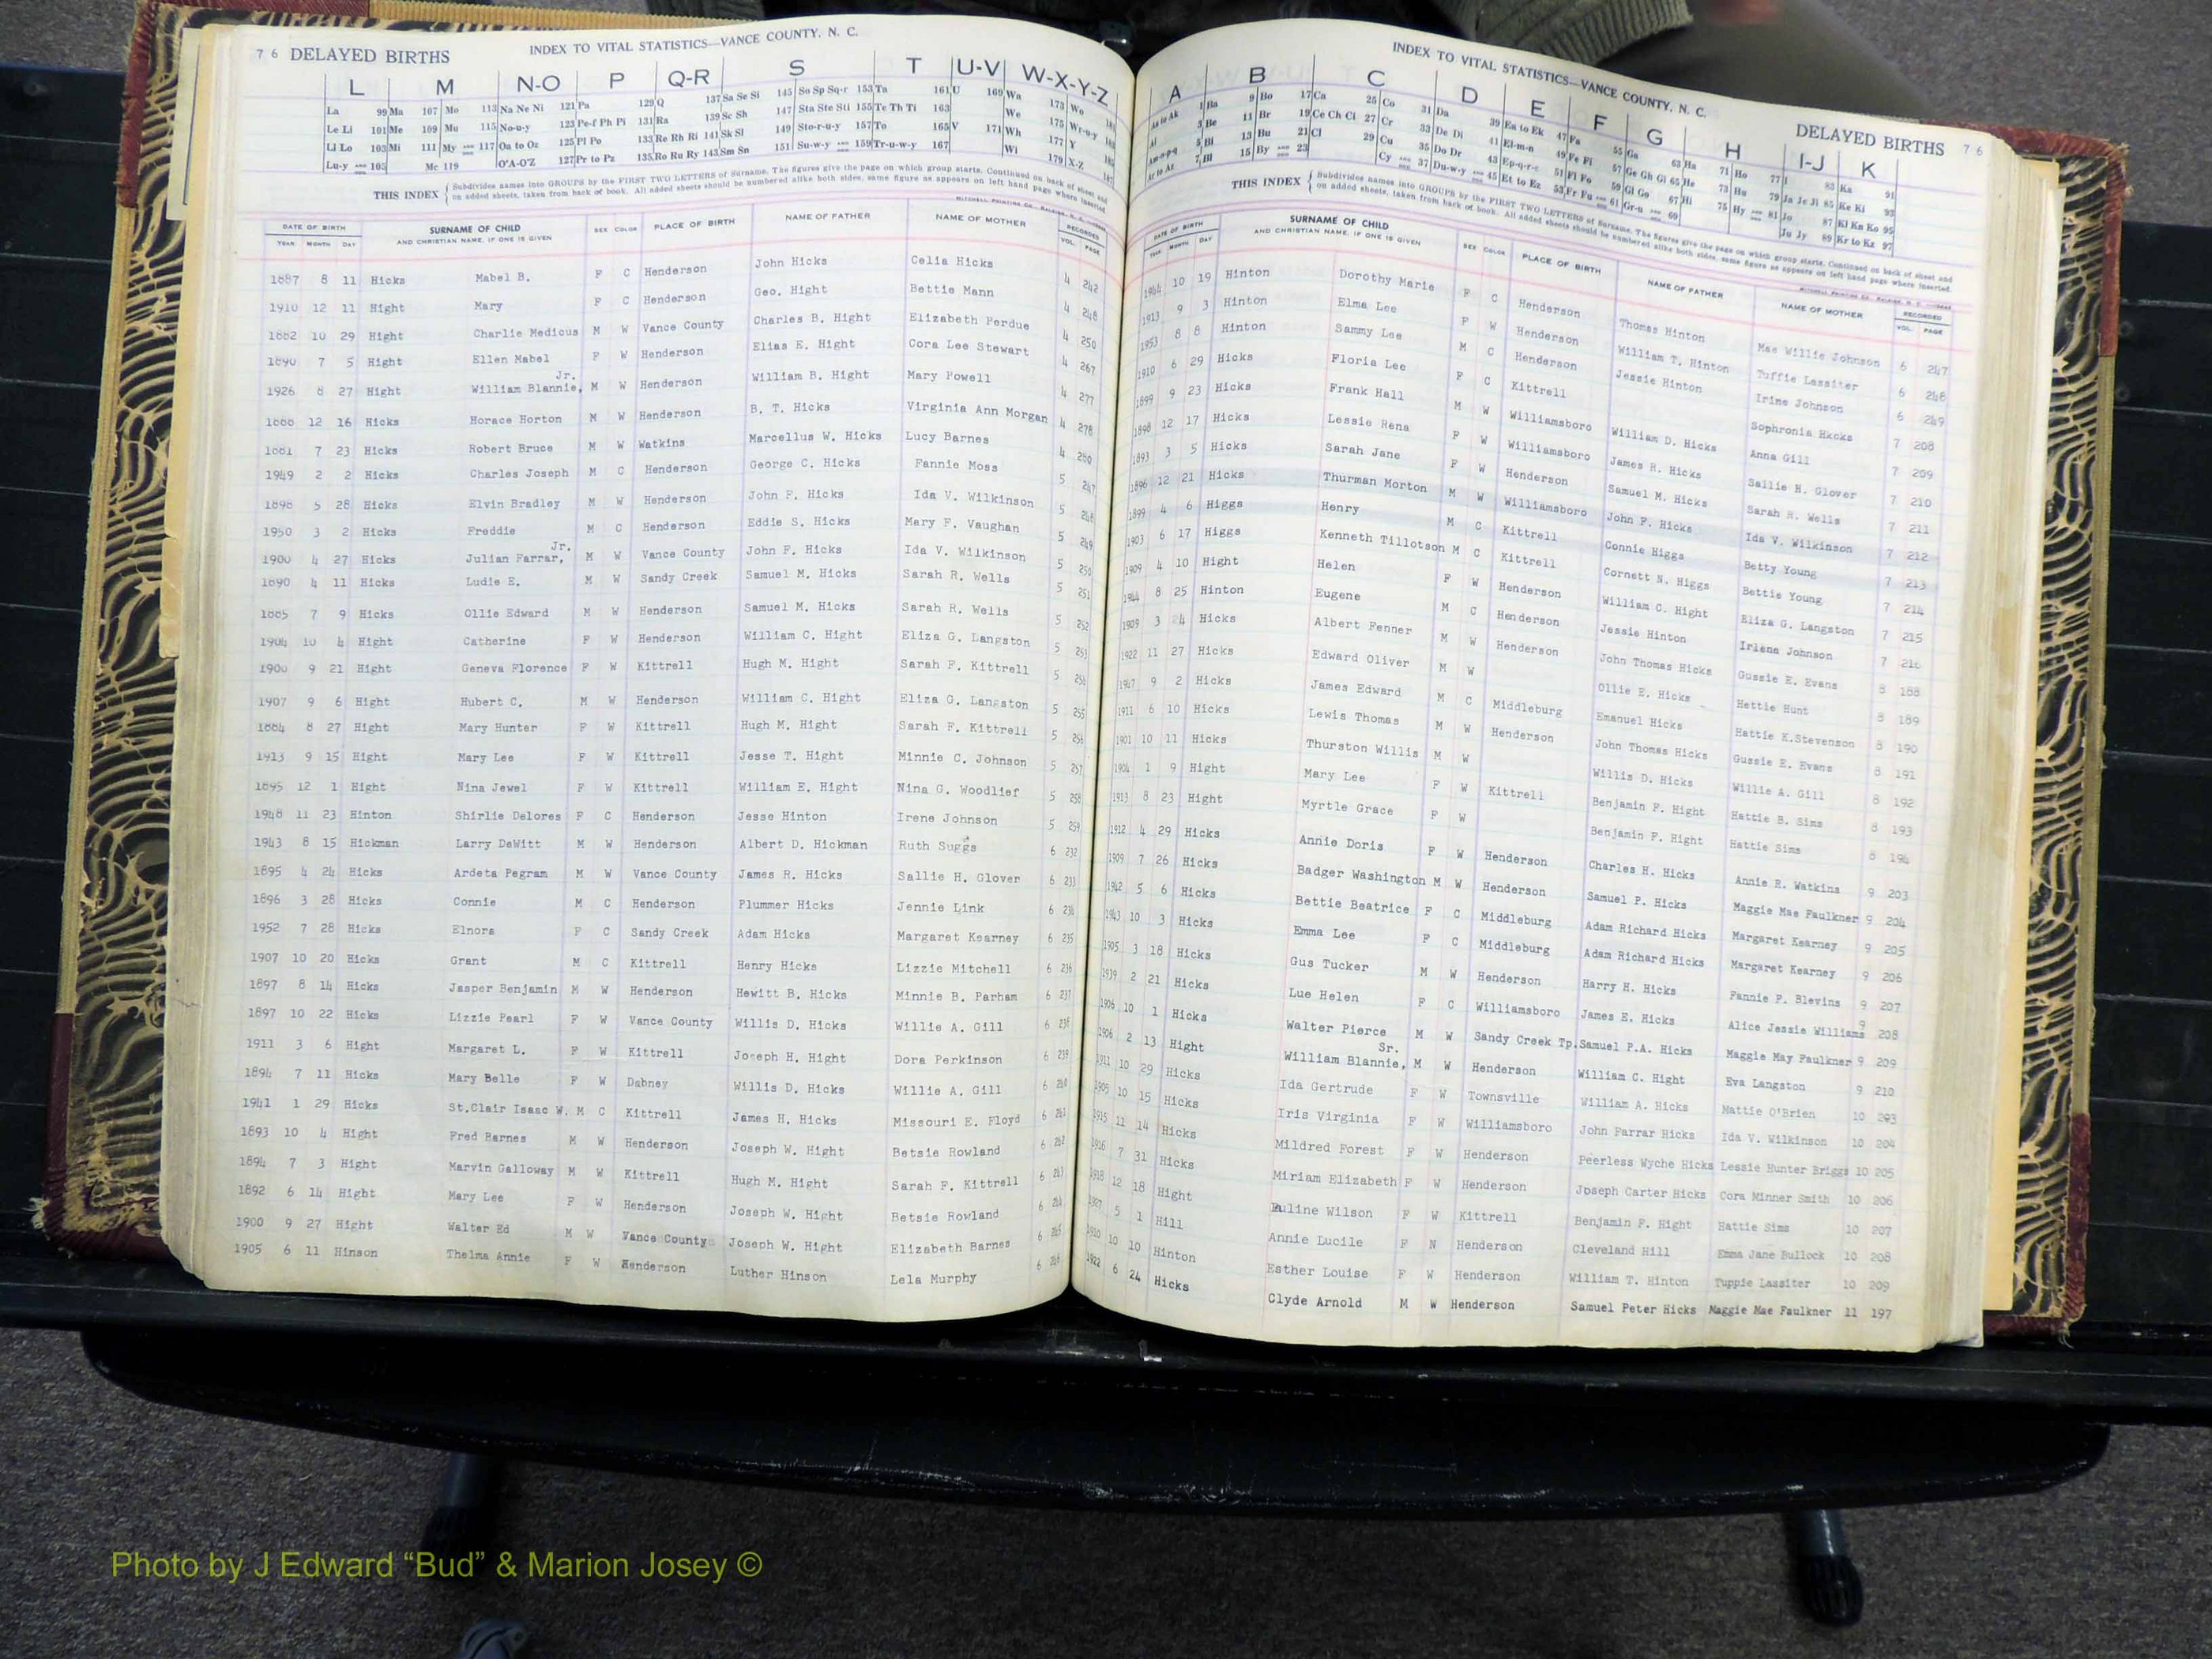 76 DELAYED BIRTHS INDEX TO VITAL STATISTICS—VANCE COUNTY, N. C.
L M N-O P Q-R S T U-V W-X-Y-Z
La 99 Ma 107 Mo 113 Na Ne Ni 121 Pa 129 Q 137 Sa Se Si 145 So Sp Sq-r 153 Ta 161 U 169 Wa 173 Wo
Le Li 101 Me 109 Mu 115 No-u-y 123 Pe-f Ph Pi 131 Ra 139 Sc Sh 147 Sta Ste Sti 155 Te Th Ti 163 We 175 Wr-u-y
Ll Lo 103 Mi 111 My 117 Oa to Oz 125 Pl Po 133 Re Rh Ri 141 Sk Sl 149 Sto-r-u-y 157 To 165 V 171 Wh 177 Y
Lu-y 105 Mc 119 O'A-O'Z 127 Pr to Pz 135 Ro Ru Ry 143 Sm Sn 151 Su-w-y 159 Tr-u-w-y 167 Wi 179 X-Z
THIS INDEX Subdivides names into GROUPS by the FIRST TWO LETTERS of Surname. The figures give the page on which group starts. Continued on back of sheet and
on added sheets, taken from back of book. All added sheets should be numbered alike both sides, same figure as appears on left hand page where inserted.
DATE OF BIRTH SURNAME OF CHILD SEX COLOR PLACE OF BIRTH NAME OF FATHER NAME OF MOTHER RECORDED
YEAR MONTH DAY AND CHRISTIAN NAME, IF ONE IS GIVEN VOL. PAGE
1887 8 11 Hicks Mabel B. F C Henderson John Hicks Celia Hicks 4 242
1910 12 11 Hight Mary F C Henderson Geo. Hight Bettie Mann 4 248
1882 10 29 Hight Charlie Medicus M W Vance County Charles B. Hight Elizabeth Perdue 4 250
1890 7 5 Hight Ellen Mabel F W Henderson Elias E. Hight Cora Lee Stewart 4 267
1926 8 27 Hight William Blannie, Jr. M W Henderson William B. Hight Mary Powell 4 277
1888 12 16 Hicks Horace Horton M W Henderson B. T. Hicks Virginia Ann Morgan 4 278
1881 7 23 Hicks Robert Bruce M W Watkins Marcellus W. Hicks Lucy Barnes 4 280
1949 2 2 Hicks Charles Joseph M C Henderson George C. Hicks Fannie Moss 5 247
1898 5 28 Hicks Elvin Bradley M W Henderson John F. Hicks Ida V. Wilkinson 5 248
1950 3 2 Hicks Freddie M C Henderson Eddie S. Hicks Mary F. Vaughan 5 249
1900 4 27 Hicks Julian Farrar, Jr. M W Vance County John F. Hicks Ida V. Wilkinson 5 250
1890 4 11 Hicks Ludie E. M W Sandy Creek Samuel M. Hicks Sarah R. Wells 5 251
1885 7 9 Hicks Ollie Edward M W Henderson Samuel M. Hicks Sarah R. Wells 5 252
1904 10 4 Hight Catherine F W Henderson William C. Hight Eliza G. Langston 5 253
1900 9 21 Hight Geneva Florence F W Kittrell Hugh M. Hight Sarah F. Kittrell 5 254
1907 9 6 Hight Hubert C. M W Henderson William C. Hight Eliza G. Langston 5 255
1884 8 27 Hight Mary Hunter F W Kittrell Hugh M. Hight Sarah F. Kittrell 5 256
1913 9 15 Hight Mary Lee F W Kittrell Jesse T. Hight Minnie C. Johnson 5 257
1895 12 1 Hight Nina Jewel F W Kittrell William E. Hight Nina G. Woodlief 5 258
1948 11 23 Hinton Shirlie Delores F C Henderson Jesse Hinton Irene Johnson 5 259
1943 8 15 Hickman Larry DeWitt M W Henderson Albert D. Hickman Ruth Suggs 6 232
1895 4 24 Hicks Ardeta Pegram M W Vance County James R. Hicks Sallie H. Glover 6 233
1896 3 28 Hicks Connie M C Henderson Plummer Hicks Jennie Link 6 234
1952 7 28 Hicks Elnora F C Sandy Creek Adam Hicks Margaret Kearney 6 235
1907 10 20 Hicks Grant M C Kittrell Henry Hicks Lizzie Mitchell 6 236
1897 8 14 Hicks Jasper Benjamin M W Henderson Hewitt B. Hicks Minnie B. Parham 6 237
1897 10 22 Hicks Lizzie Pearl F W Vance County Willis D. Hicks Willie A. Gill 6 238
1911 3 6 Hight Margaret L. F W Kittrell Joseph H. Hight Dora Perkinson 6 239
1894 7 11 Hicks Mary Belle F W Dabney Willis D. Hicks Willie A. Gill 6 240
1941 1 29 Hicks St.Clair Isaac W. M C Kittrell James H. Hicks Missouri E. Floyd 6 241
1893 10 4 Hight Fred Barnes M W Henderson Joseph W. Hight Betsie Rowland 6 242
1894 7 3 Hight Marvin Galloway M W Kittrell Hugh M. Hight Sarah F. Kittrell 6 243
1892 6 14 Hight Mary Lee F W Henderson Joseph W. Hight Betsie Rowland 6 244
1900 9 27 Hight Walter Ed M W Vance County Joseph W. Hight Elizabeth Barnes 6 245
1905 6 11 Hinson Thelma Annie F W Henderson Luther Hinson Lela Murphy 6 246
INDEX TO VITAL STATISTICS—VANCE COUNTY, N. C. DELAYED BIRTHS 76
A B C D E F G H I-J K
Aa to Ak 1 Ba 9 Bo 17 Ca 25 Co 31 Da 39 Ea to Ek 47 Fa 55 Ga 63 Ha 71 Ho 77 I 83 Ka 91
Al 3 Be 11 Br 19 Ce Ch Ci 27 Cr 33 De Di 41 El-m-n 49 Fe Fi 57 Ge Gh Gi 65 He 73 Hu 79 Ja Je Ji 85 Ke Ki 93
Am-n-p-q 5 Bi 13 Bu 21 Cl 29 Cu 35 Do Dr 43 Ep-q-r-s 51 Fl Fo 59 Gl Go 67 Hi 75 Hy 81 Jo 87 Kl Kn Ko 95
Ar to Az 7 Bl 15 By 23 Cy 37 Du-w-y 45 Et to Ez 53 Fr Fu 61 Gr-u 69 Ju Jy 89 Kr to Kz 97
THIS INDEX Subdivides names into GROUPS by the FIRST TWO LETTERS of Surname. The figures give the page on which group starts. Continued on back of sheet and
on added sheets, taken from back of book. All added sheets should be numbered alike both sides, same figure as appears on left hand page where inserted.
DATE OF BIRTH SURNAME OF CHILD SEX COLOR PLACE OF BIRTH NAME OF FATHER NAME OF MOTHER RECORDED
YEAR MONTH DAY AND CHRISTIAN NAME, IF ONE IS GIVEN VOL. PAGE
1944 10 19 Hinton Dorothy Marie F C Henderson Thomas Hinton Mae Willie Johnson 6 247
1913 9 3 Hinton Elma Lee F W Henderson William T. Hinton Tuffie Lassiter 6 248
1953 8 8 Hinton Sammy Lee M C Henderson Jessie Hinton Irine Johnson 6 249
1910 6 29 Hicks Floria Lee F C Kittrell Sophronia Hkcks 7 208
1899 9 23 Hicks Frank Hall M W Williamsboro William D. Hicks Anna Gill 7 209
1898 12 17 Hicks Lessie Rena F W Williamsboro James R. Hicks Sallie H. Glover 7 210
1893 3 5 Hicks Sarah Jane F W Henderson Samuel M. Hicks Sarah R. Wells 7 211
1896 12 21 Hicks Thurman Morton M W Williamsboro John F. Hicks Ida V. Wilkinson 7 212
1899 4 6 Higgs Henry M C Kittrell Connie Higgs Betty Young 7 213
1903 6 17 Higgs Kenneth Tillotson M C Kittrell Cornett N. Higgs Bettie Young 7 214
1909 4 10 Hight Helen F W Henderson William C. Hight Eliza G. Langston 7 215
1944 8 25 Hinton Eugene M C Henderson Jessie Hinton Irlena Johnson 7 216
1909 3 24 Hicks Albert Fenner M W Henderson John Thomas Hicks Gussie E. Evans 8 188
1922 11 27 Hicks Edward Oliver M W Ollie E. Hicks Hettie Hunt 8 189
1947 9 2 Hicks James Edward M C Middleburg Emanuel Hicks Hattie K.Stevenson 8 190
1911 6 10 Hicks Lewis Thomas M W Henderson John Thomas Hicks Gussie E. Evans 8 191
1901 10 11 Hicks Thurston Willis M W Willis D. Hicks Willie A. Gill 8 192
1904 1 9 Hight Mary Lee F W Kittrell Benjamin F. Hight Hattie B. Sims 8 193
1913 8 23 Hight Myrtle Grace F W Benjamin F. Hight Hattie Sims 8 194
1912 4 29 Hicks Annie Doris F W Henderson Charles H. Hicks Annie E. Watkins 9 203
1909 7 26 Hicks Badger Washington M W Henderson Samuel P. Hicks Maggie Mae Faulkner 9 204
1942 5 6 Hicks Bettie Beatrice F C Middleburg Adam Richard Hicks Margaret Kearney 9 205
1943 10 3 Hicks Emma Lee F C Middleburg Adam Richard Hicks Margaret Kearney 9 206
1905 3 18 Hicks Gus Tucker M W Henderson Harry H. Hicks Fannie P. Blevins 9 207
1939 2 21 Hicks Lue Helen F C Williamsboro James E. Hicks Alice Jessie Williams 9 208
1906 10 1 Hicks Walter Pierce M W Sandy Creek Tp. Samuel P.A. Hicks Maggie May Faulkner 9 209
1906 2 13 Hight William Blannie, Sr. M W Henderson William C. Hight Eva Langston 9 210
1911 10 29 Hicks Ida Gertrude F W Townsville William A. Hicks Mattie O'Brien 10 203
1905 10 15 Hicks Iris Virginia F W Williamsboro John Farrar Hicks Ida V. Wilkinson 10 204
1915 11 14 Hicks Mildred Forest F W Henderson Peerless Wyche Hicks Lessie Hunter Briggs 10 205
1916 7 31 Hicks Miriam Elizabeth F W Henderson Joseph Carter Hicks Cora Minner Smith 10 206
1918 12 18 Hight Pauline Wilson F W Kittrell Benjamin F. Hight Hattie Sims 10 207
1927 5 1 Hill Annie Lucile F N Henderson Cleveland Hill Emma Jane Bullock 10 208
1910 10 10 Hinton Esther Louise F W Henderson William T. Hinton Tuppie Lassiter 10 209
1922 6 24 Hicks Clyde Arnold M W Henderson Samuel Peter Hicks Maggie Mae Faulkner 11 197
Photo by J Edward “Bud” & Marion Josey ©